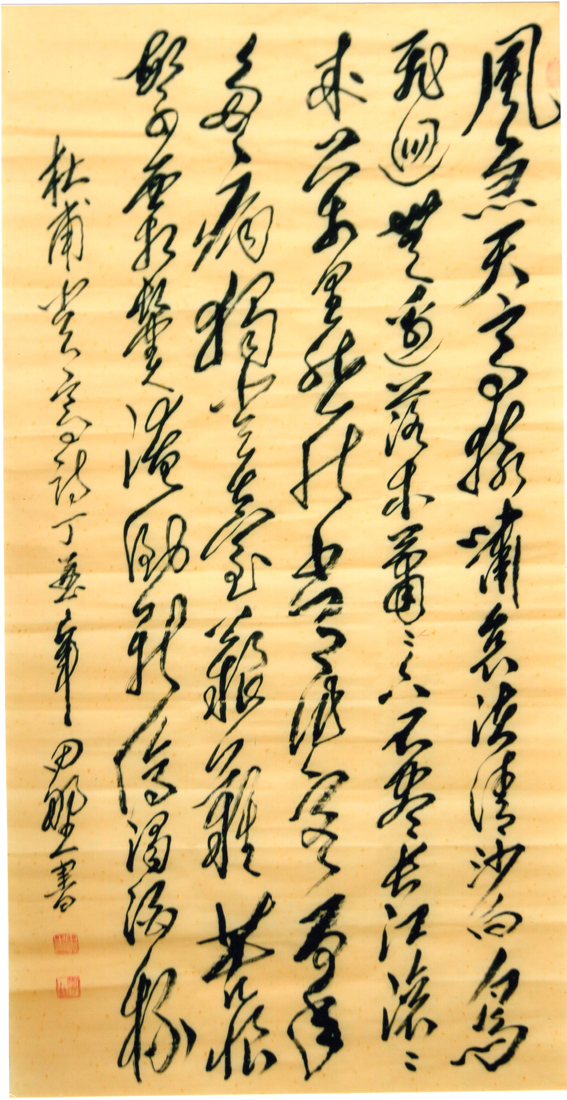 風急天高猿嘯哀渚清沙白鳥
飛迴無邊落木蕭〻下不盡長江滾〻
來萬里悲秋常作客百年
多病獨登臺艱難苦恨
繁霜鬢潦倒新停濁酒杯
杜甫登高詩丁亥年 書